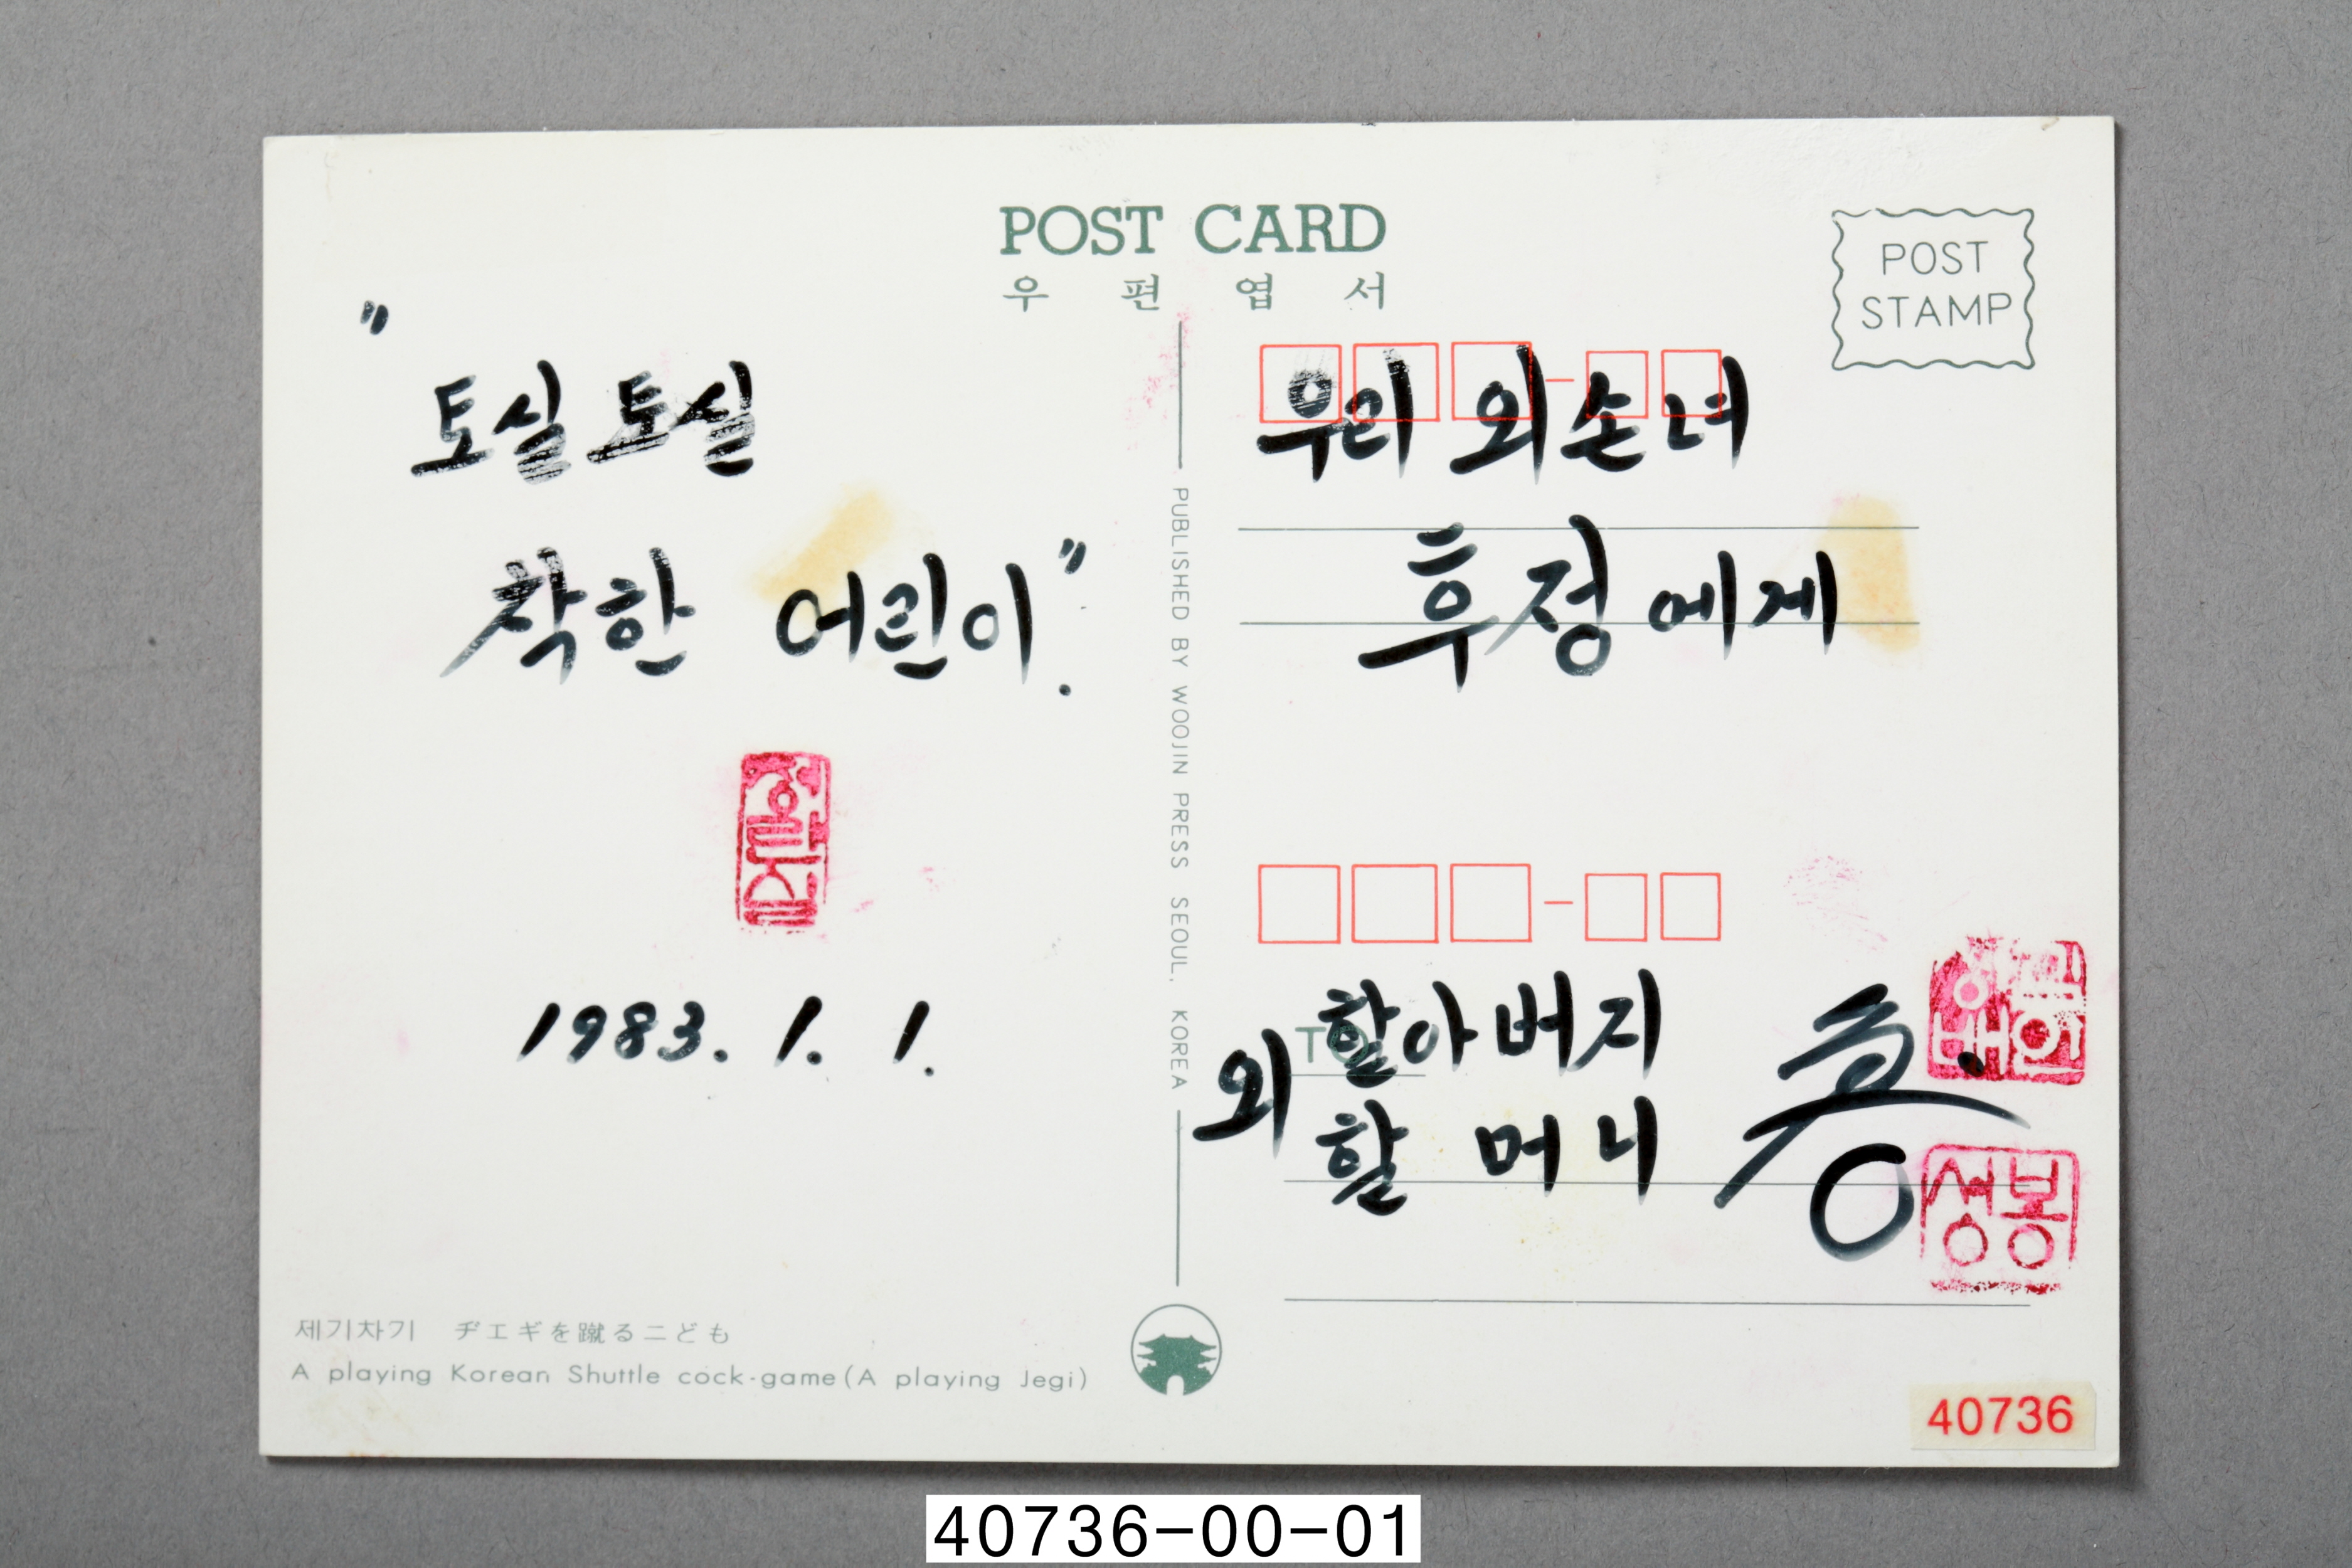 POST CARD
우편엽서
POST
STAMP
"
토실토실
착한 어린이".
1983. 1. 1.
우리 외손녀
후정에게
TO
외 할아버지
할머니
성봉
PUBLISHED BY WOOJIN PRESS SEOUL, KOREA
제기차기 ヂエギを蹴る二ども
A playing Korean Shuttle cock-game (A playing Jegi)
40736
40736-00-01